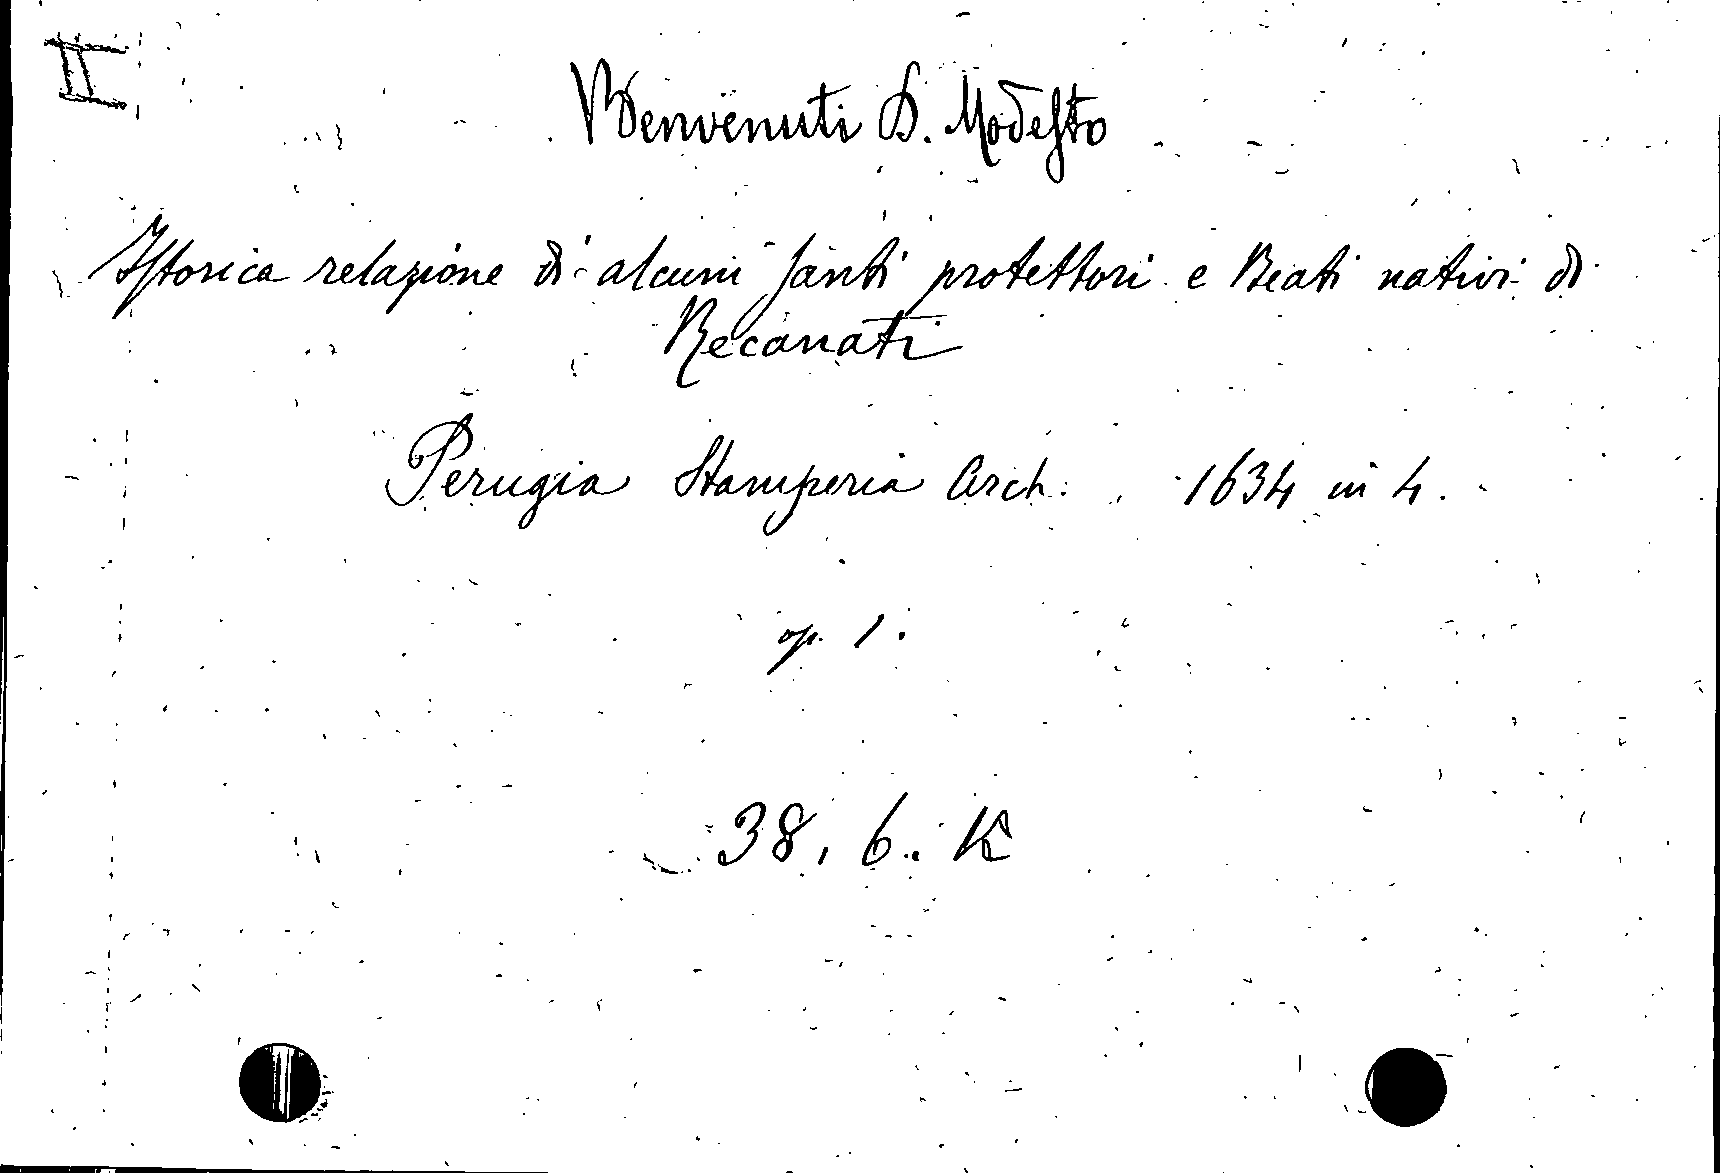 II
Benvenuti D. Modesto
Istorica relazione di alcuni santi protettori e Beati nativi di
Recanati
Perugia Stamperia Arch. 1634 in 4.
op. 1.
38. 6. K